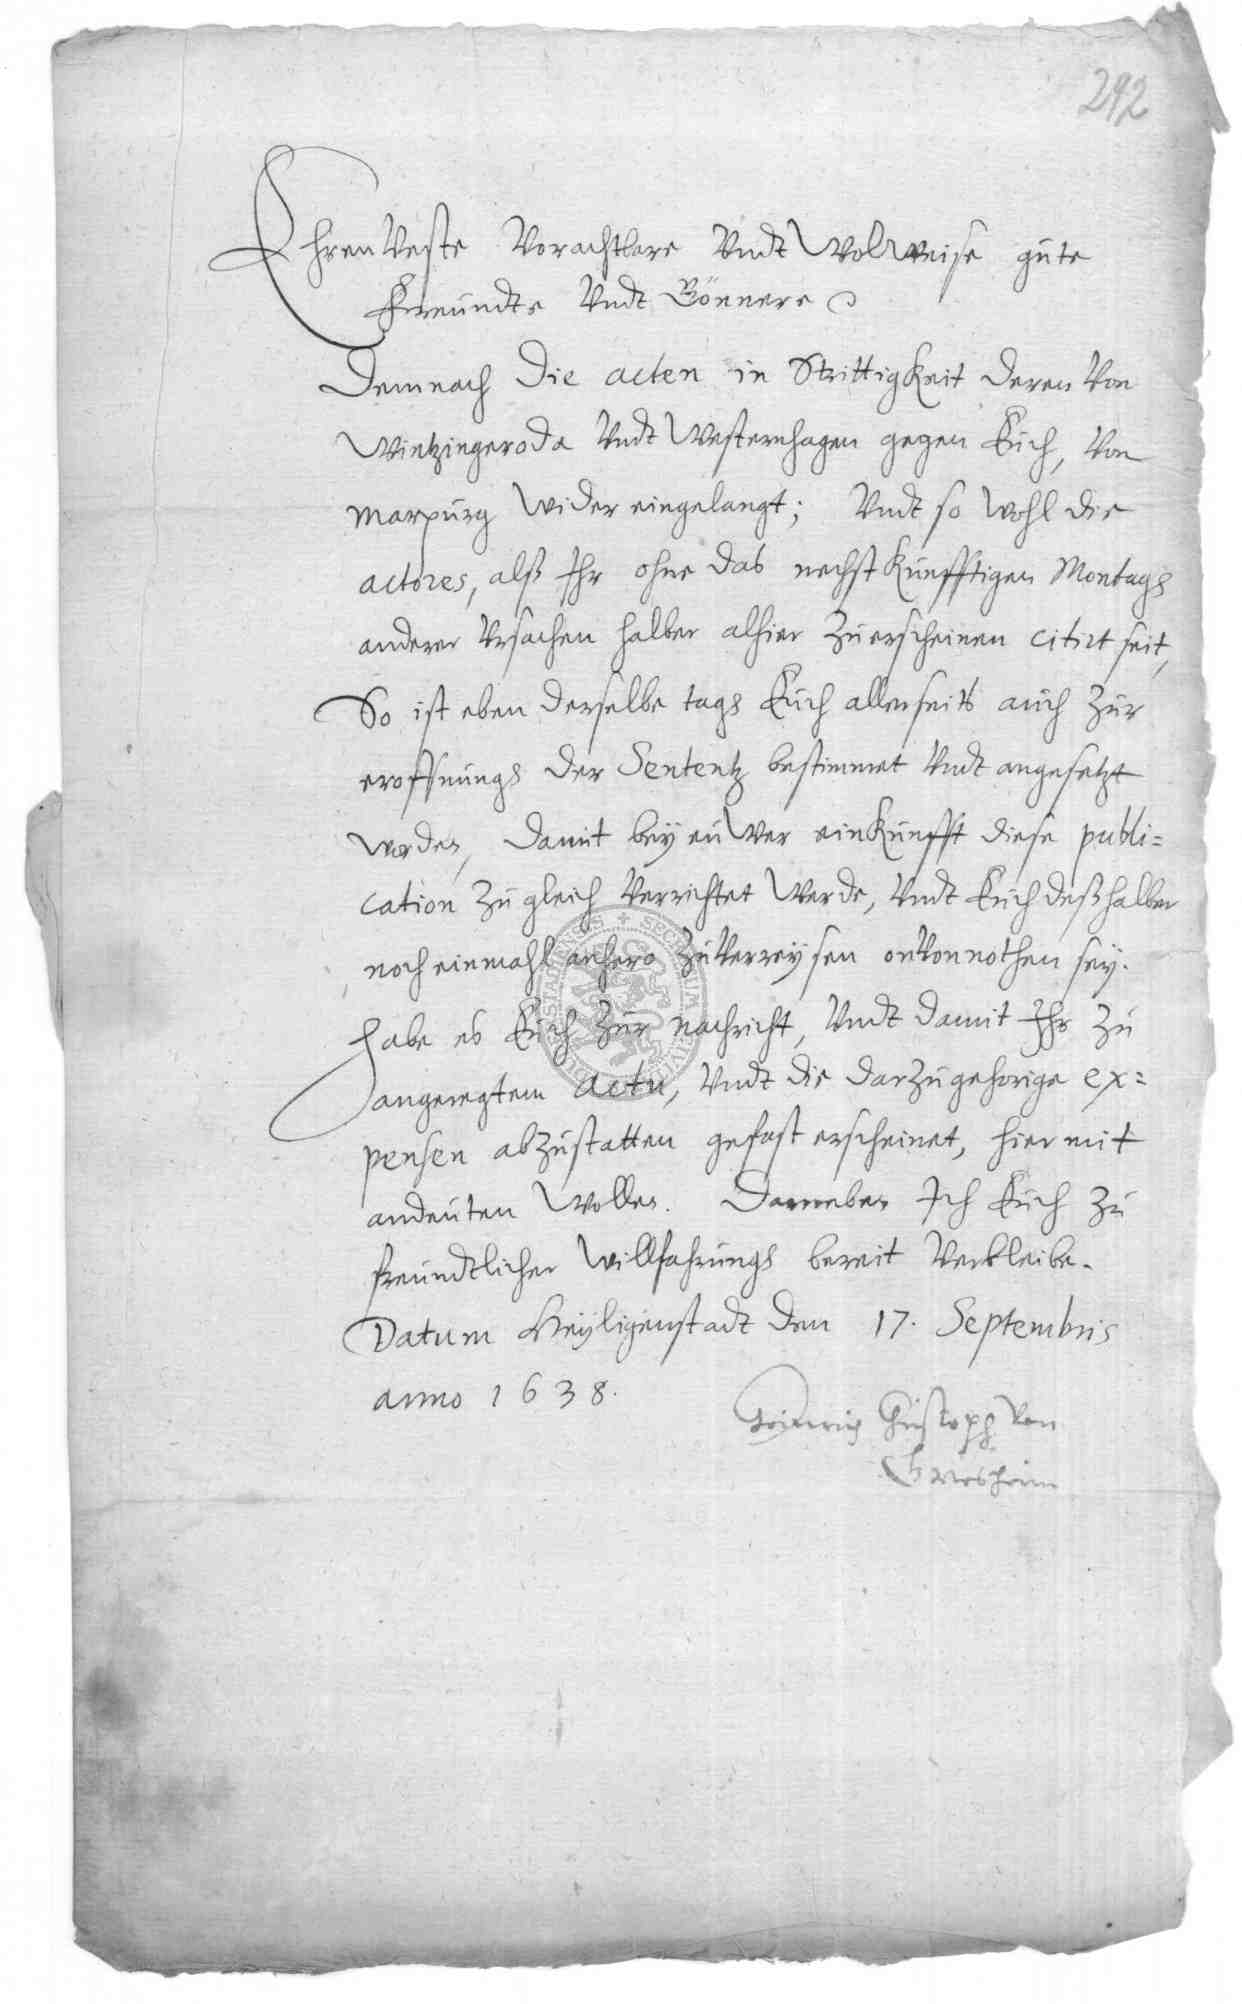 292
Ehrenveste Vorachtbare Undt Wolweise gúte
Freúndte Undt Gönnere
Demnach die acten in Strittigkeit deren Von
Wintzingeroda Undt Westernhagen gegen Eúch, Von
Marpúrg wider eingelangt; Undt so wohl die
actores, alß Ihr ohne das nechst künfftigen Montags
anderer Ursachen halber alhier zúerscheinen citirt seit,
So ist eben derselbe tags Eúch allerseits aúch zúr
eroffnúngs der Sententz bestimmet Undt angesetzt
worden, damit beÿ eúwer einkúnfft diese publi=
cation zúgleich Verrichtet werde, Undt Eúch deßhalben
noch einmahl anhero zúverreÿsen onvonnothen seÿ.
Habe es Eúch zúr nachricht, Undt damit Ihr zú
angeregtem actu, Undt die darzúgehorige ex=
pensen abzústatten gefast erscheinet, hiermit
andeúten wollen. Darneben Ich Eúch zú
freúndtlicher willfahrúngs bereit Verbleibe.
Datum Heÿligenstadt den 17. Septembris
anno 1638.
Christoph Von
Griesheim
SECRETUM